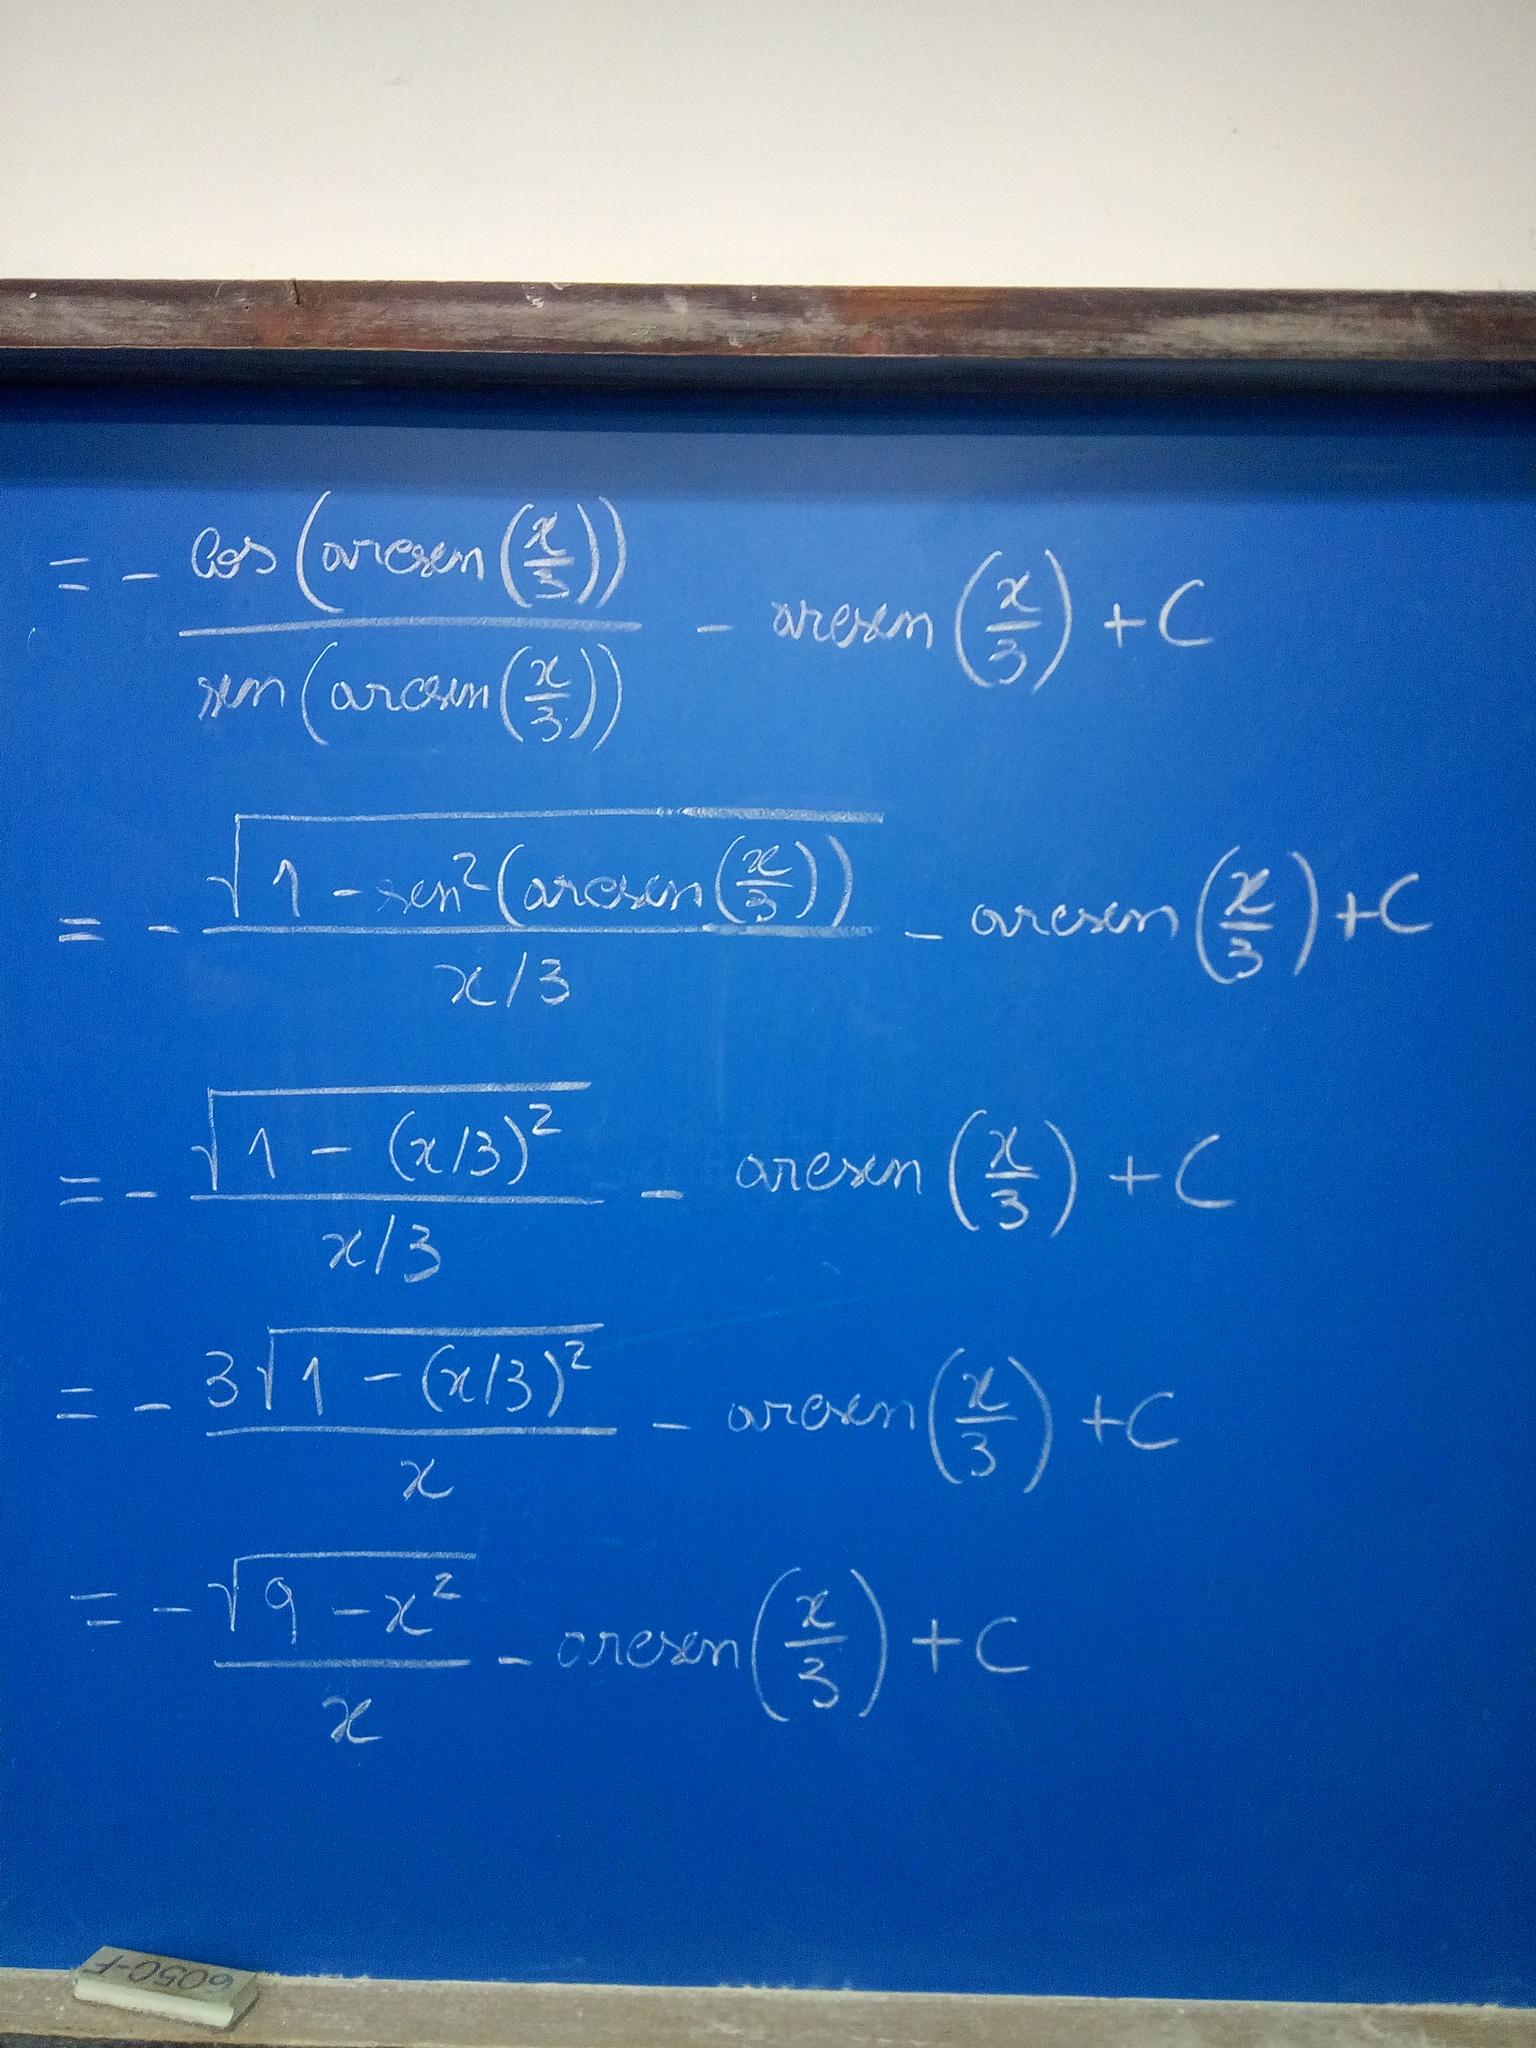 = - cos(arcsen(x/3)) / sen(arcsen(x/3)) - arcsen(x/3) + C
= - √(1 - sen²(arcsen(x/3))) / (x/3) - arcsen(x/3) + C
= - √(1 - (x/3)²) / (x/3) - arcsen(x/3) + C
= - 3√(1 - (x/3)²) / x - arcsen(x/3) + C
= - √(9 - x²) / x - arcsen(x/3) + C
6050-F